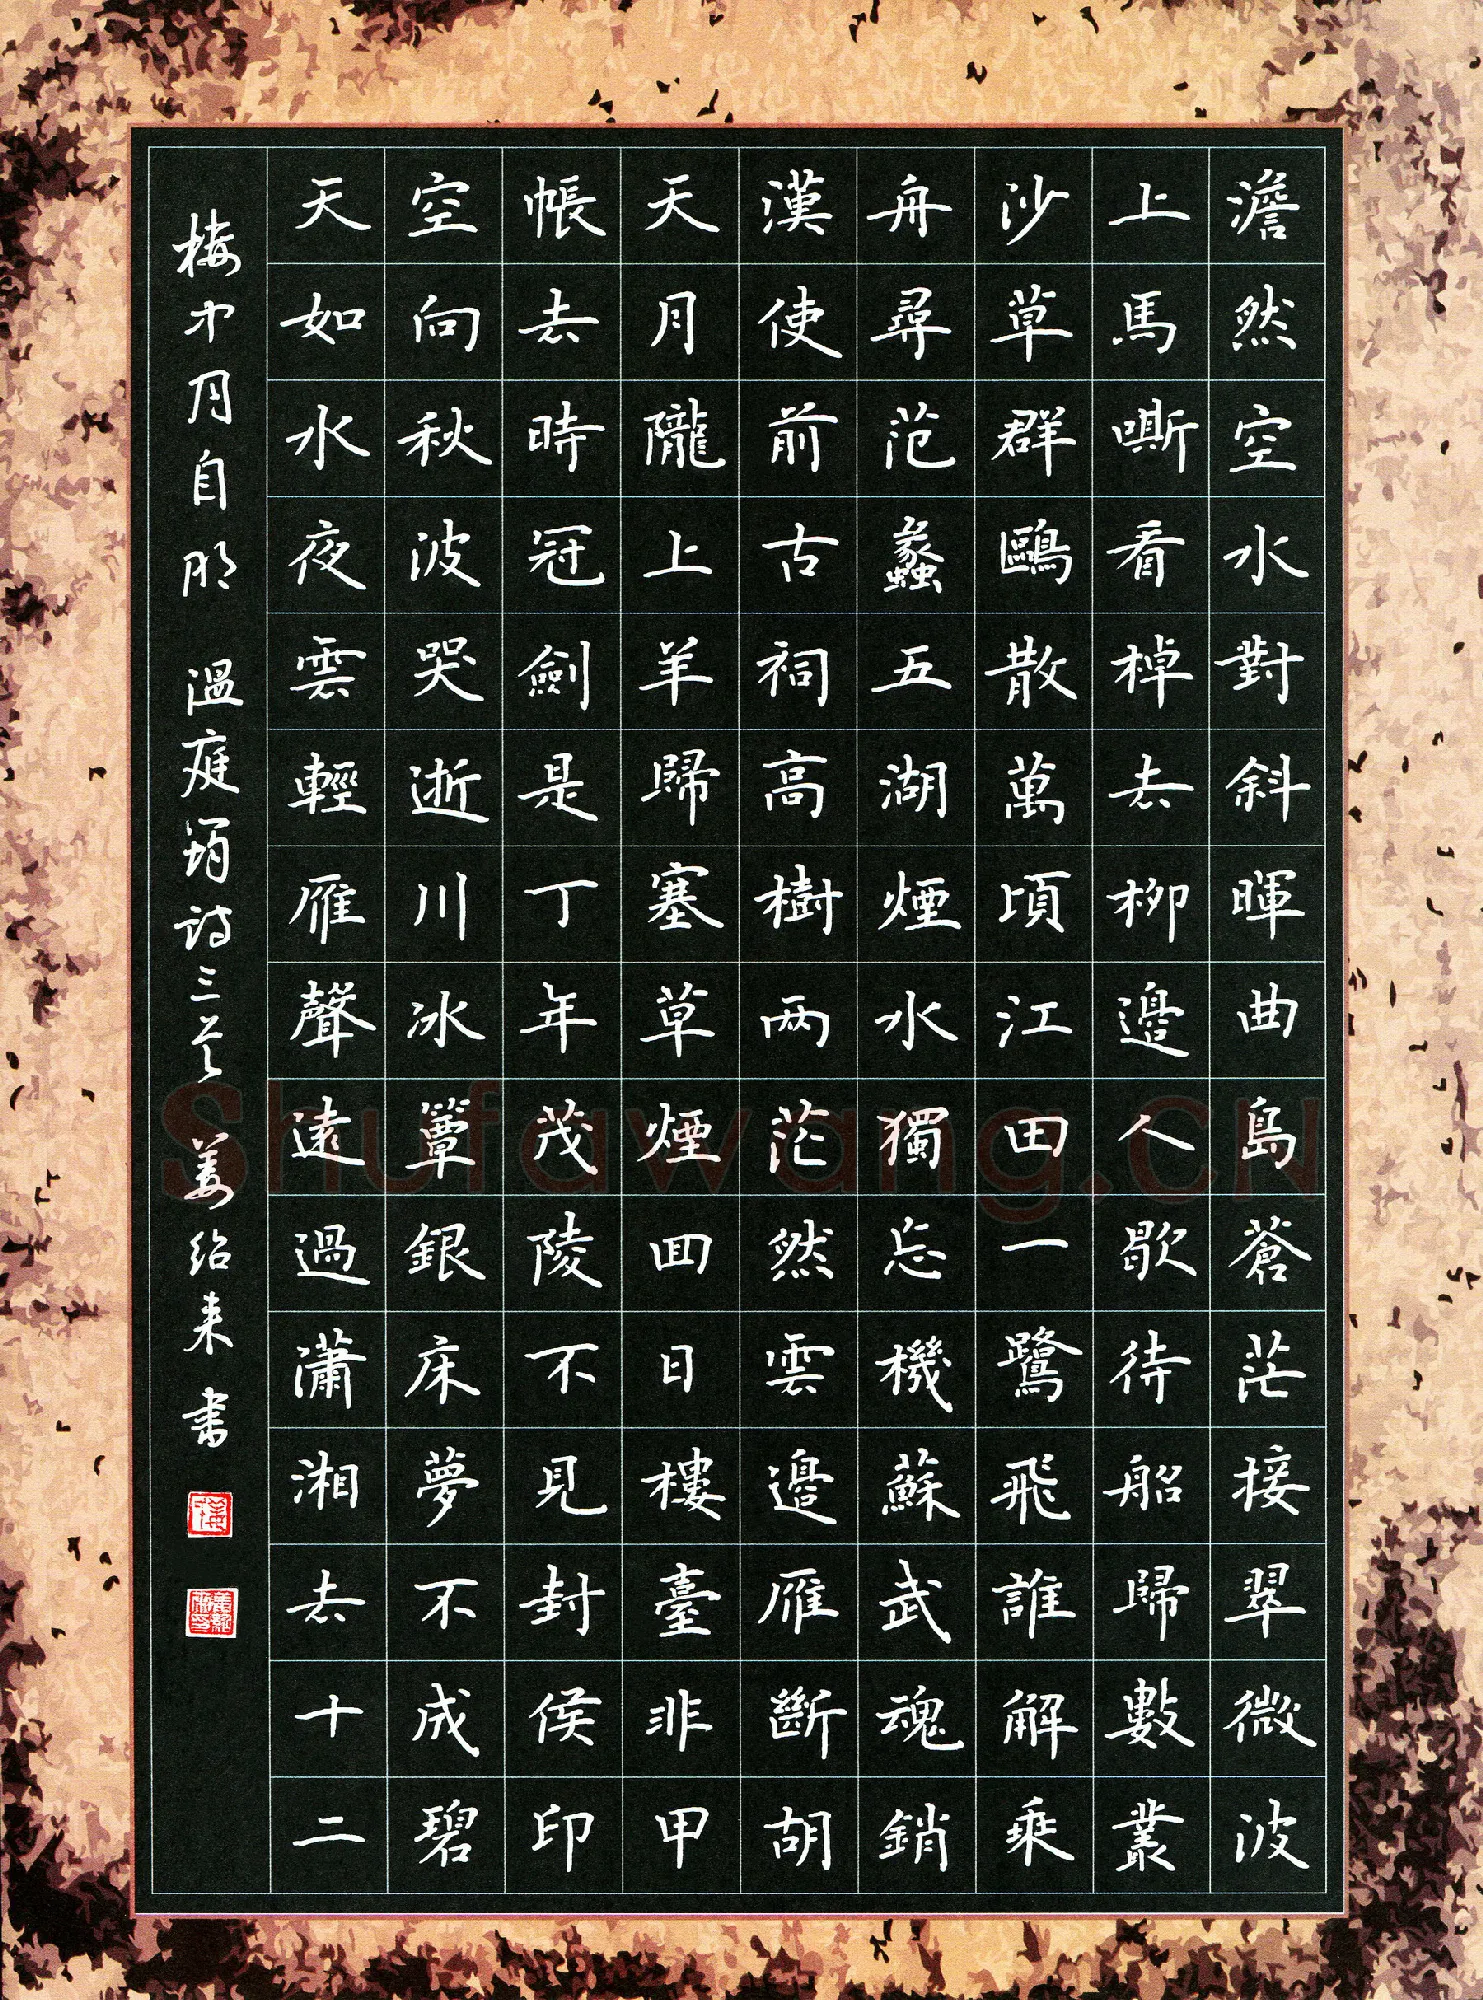 澹然空水對斜暉曲島蒼茫接翠微波
上馬嘶看棹去柳邊人歇待船歸數叢
沙草群鷗散萬頃江田一鷺飛誰解乘
舟尋范蠡五湖煙水獨忘機蘇武魂銷
漢使前古祠高樹兩茫然雲邊雁斷胡
天月隴上羊歸塞草煙回日樓臺非甲
帳去時冠劍是丁年茂陵不見封侯印
空向秋波哭逝川冰簟銀床夢不成碧
天如水夜雲輕雁聲遠過瀟湘去十二
樓中月自明 溫庭筠詩三首 姜紹来書
Shufawang.CN